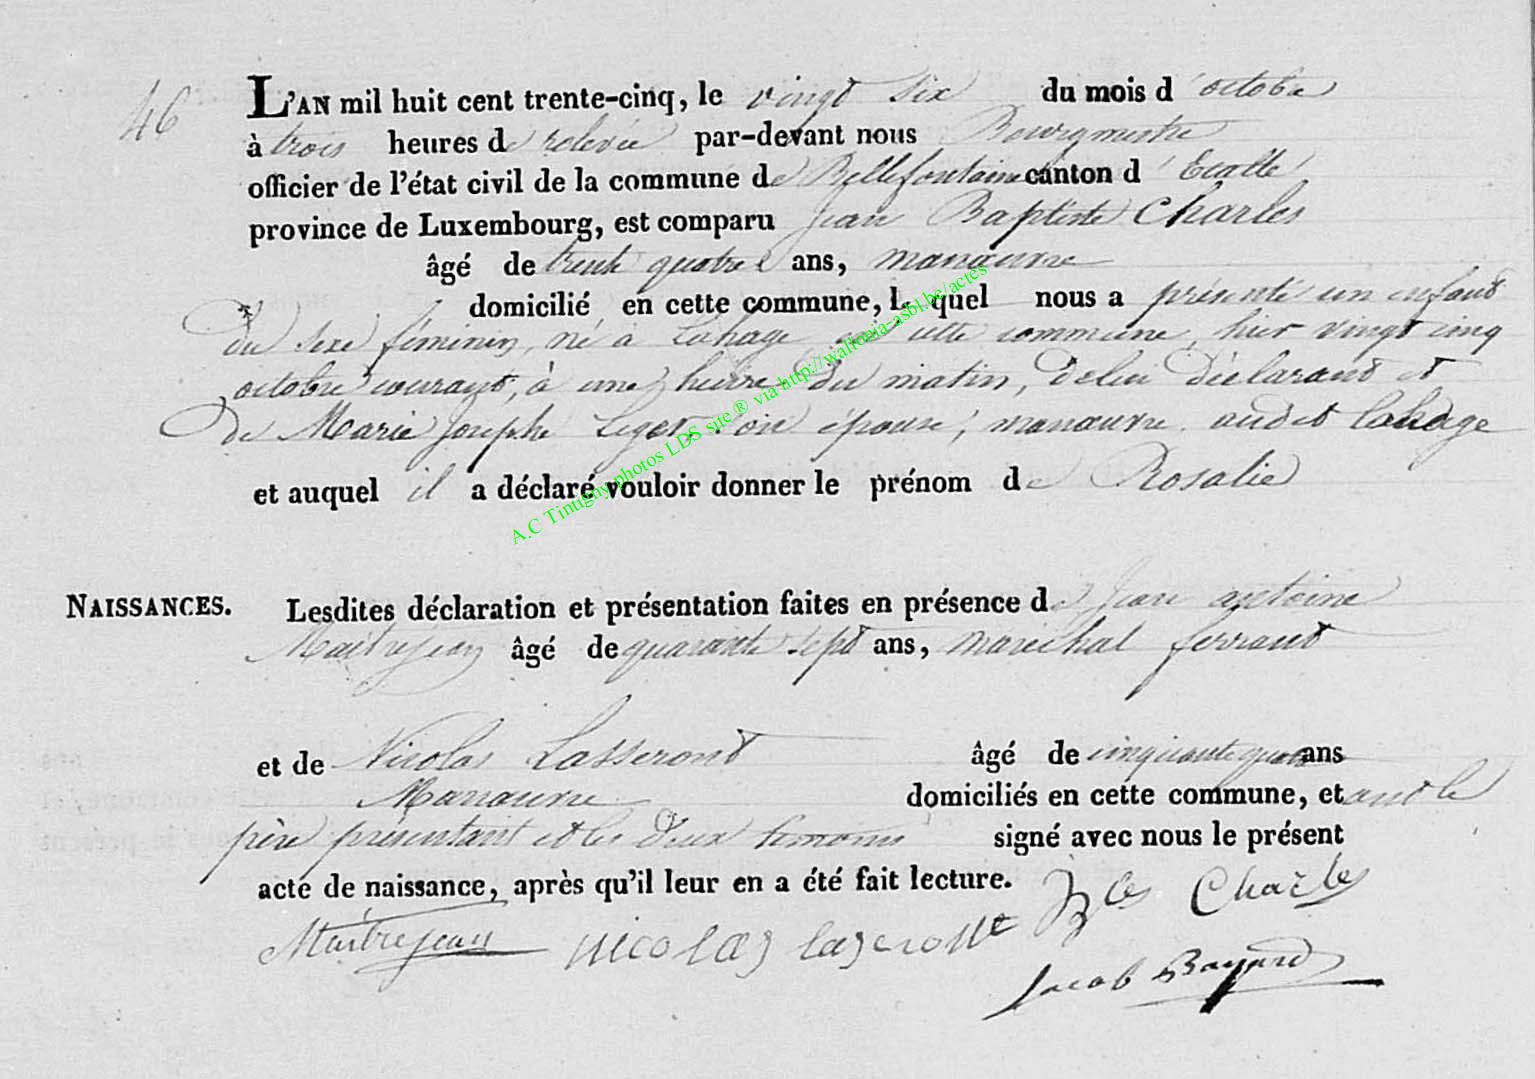 46
L'AN mil huit cent trente-cinq, le vingt six du mois d'octobre
à trois heures de relevée par-devant nous Bourgmestre
officier de l'état civil de la commune de Bellefontaine canton d'Etalle
province de Luxembourg, est comparu Jean Baptiste Charles
âgé de trente quatre ans, manœuvre
domicilié en cette commune, le quel nous a présenté un enfant
du sexe féminin, né à Lahage en cette commune, hier vingt cinq
octobre courant, à une heure du matin, de lui déclarant et
de Marie Josephe Leger son épouse, manœuvre audit Lahage
et auquel il a déclaré vouloir donner le prénom de Rosalie
NAISSANCES. Lesdites déclaration et présentation faites en présence de Jean antoine
Maitrejean âgé de quarante sept ans, marechal ferrant
et de Nicolas Lasseront âgé de cinquante ans
Manœuvre domiciliés en cette commune, et ont le
père présentant et les deux temoins signé avec nous le présent
acte de naissance, après qu'il leur en a été fait lecture.
Charles
Maitrejean nicolas
Jacob Bayard
A.C Tintigny photos LDS site ® via http://wallonia-asbl.be/actes